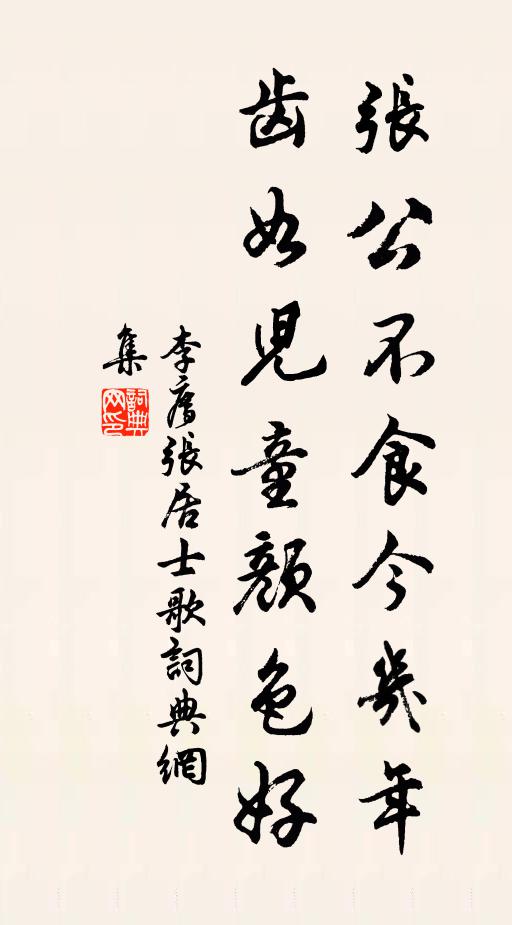 張公不食今幾年
齿如児童顔色好
李廌張居士歌詞典網
集
詞典
网印